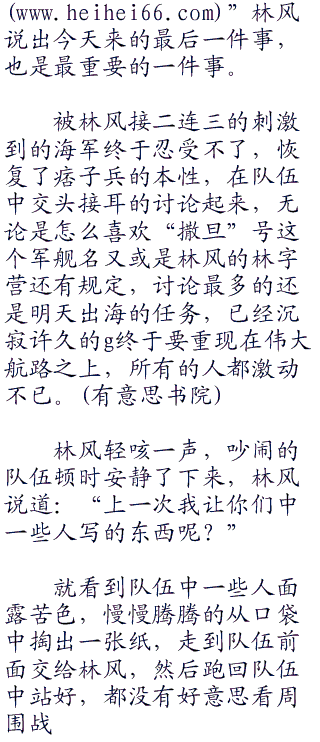 (www.heihei66.com)”林风
说出今天来的最后一件事，
也是最重要的一件事。
被林风接二连三的刺激
到的海军终于忍受不了，恢
复了痞子兵的本性，在队伍
中交头接耳的讨论起来，无
论是怎么喜欢“撒旦”号这
个军舰名又或是林风的林字
营还有规定，讨论最多的还
是明天出海的任务，已经沉
寂许久的g终于要重现在伟大
航路之上，所有的人都激动
不已。(有意思书院)
林风轻咳一声，吵闹的
队伍顿时安静了下来，林风
说道：“上一次我让你们中
一些人写的东西呢？”
就看到队伍中一些人面
露苦色，慢慢腾腾的从口袋
中掏出一张纸，走到队伍前
面交给林风，然后跑回队伍
中站好，都没有好意思看周
围战